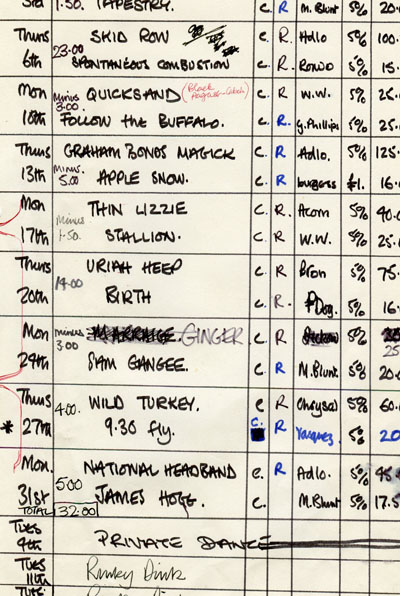 3rd 1.50. TAPESTRY. c. R M. Blunt 5% 20.
Thurs SKID ROW c. R. Adlo 5% 100.
6th 23.00 SPONTANEOUS COMBUSTION c. R. Rondo 5% 15.
Mon minus QUICKSAND (Black c. R W.W. 5% 25.
10th 3.00. FOLLOW the BUFFALO. c. R. G. Phillips 5% 25.
Thurs GRAHAM BONDS MAGICK c. R. Adlo. 5% 125.
13th minus. 5.00 APPLE SNOW. c. R burgess £1. 16.
Mon THIN LIZZIE c. R. Acorn 5% 40.0
17th minus 1.50. STALLION. c. R. W.W. 5% 25.
Thurs URIAH HEEP c R Bron 5% 75.
20th 14.00 BIRTH c. R. P Dog. 5% 16.
Mon minus GINGER c R 5% 25
24th 3.00 SAM GANGEE. c. R M. Blunt. 5% 20.
Thurs 4.00. WILD TURKEY. c R Chrysal 5% 60.
* 27th 9.30 fly. c. R Yarquez. 5% 20
Mon. NATIONAL HEADBAND c. R Adlo. 5% 45
31st 5.00 JAMES HOGG. c. M. Blunt 5% 17.5
TOTAL 32:00
TUES
4th PRIVATE DANCE
TUES
11th Rinky Dink
TUES